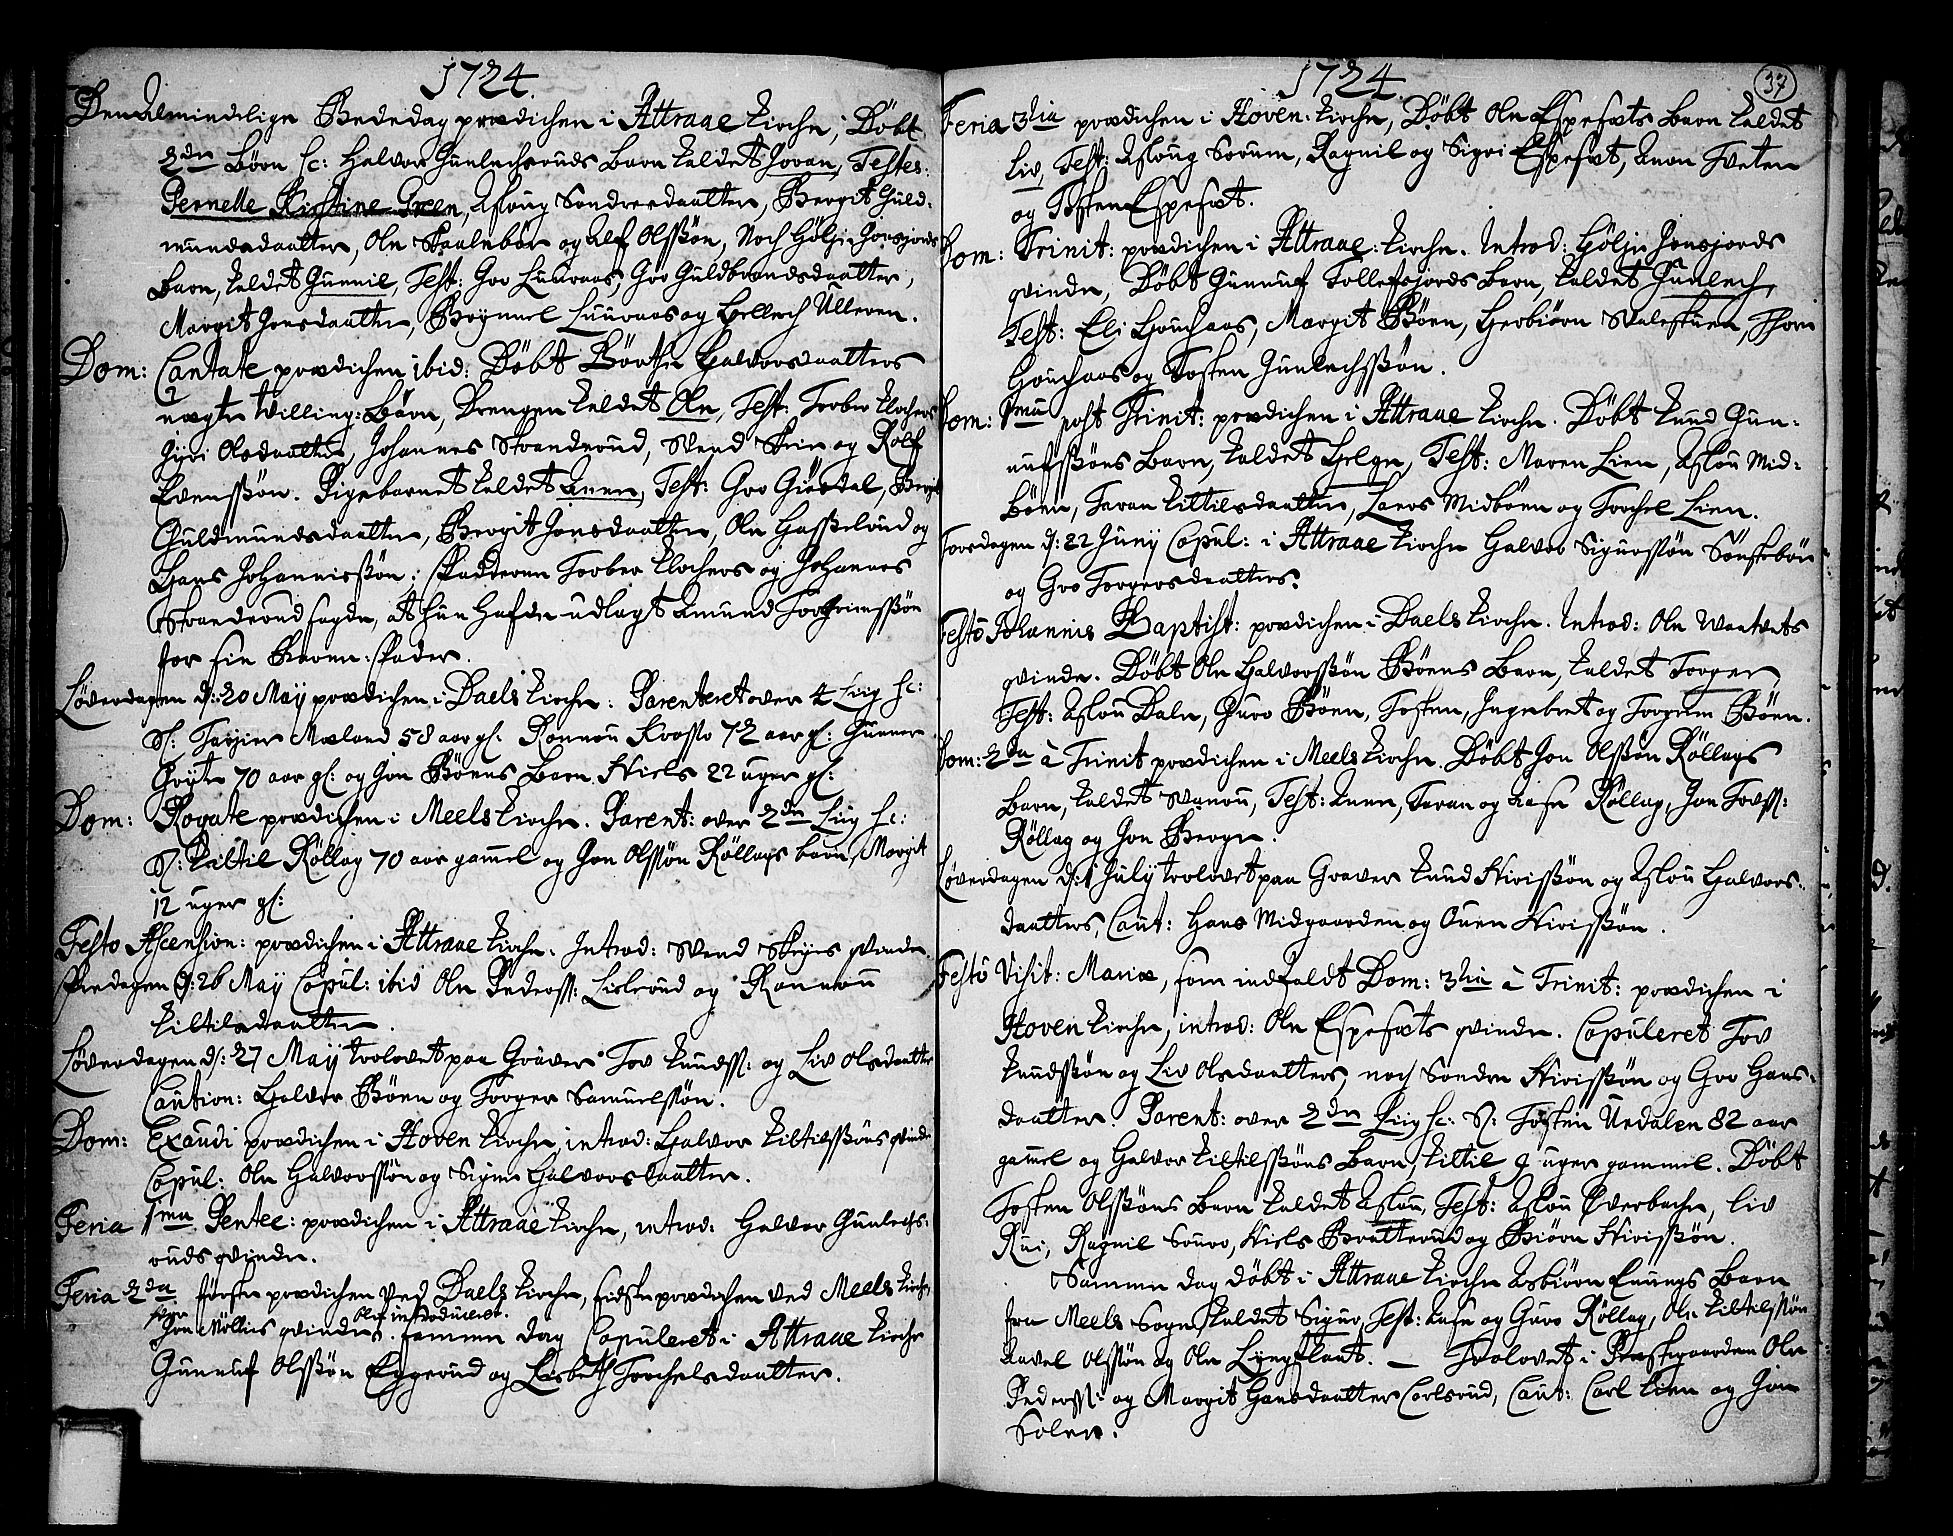 1724.
Den Almindelige Bededag prædichen i Attraae Kirche, Døbt
2de Børn sc: Halvor Gunlechsruds Barn kaldet Joran, Testes:
Pernelle Kirstine Green, Asloug Sondresdaatter, Bergit Guld-
mundsdaatter, Ole Skaalebøe og Alf Olssøn, Noch Hölje Jonsjords
Barn, kaldet Gunnil, Test: Gro Luuraas, Gro Guldbrandsdaatter,
Margit Jonsdaatter, Brynnel Luuraas og Hellech Ulleren.
Dom: Cantate prædichen ibid: Døbt Børthe Halvorsdaatters
uægte Tvilling-Børn, Drengen kaldet Ole, Test: Torber Klochers
Gyri Olsdaatter, Johannes Strandrud, Svend Skeie og Rolf
Svenssøn. Pigebarnet kaldet Anne, Test: Gro Giøsdal, Bergit
Guldmundsdaatter, Bergit Jonsdaatter, Ole Hasselrud og
Hans Johannissøn; Fadderne Torber Klochers og Johannes
Strandrud sagde, at hun hafde udlagt Amund Torgrimssøn
for sin Barne-Fader.
Løverdagen d: 20 Maij prædichen i Daels Kirche. Parenteret over 4 Liig sc:
S: Tarjer Mæland 58 aar gl: Rønnou Krosso 72 aar gl: Gunner
Grytte 70 aar gl: og Jon Bøens Barn Niels 22 uger gl:
Dom: Rogate prædichen i Meels Kirche. Parent: over 2de Liig sc:
S: Kiltil Röllag 70 aar gamel og Jon Olssøn Röllags barn, Margit
12 uger gl:
Festo Ascension: prædichen i Attraae Kirche. Introd: Svend Skeyes Qvinde.
Fredagen d: 26 Maij Copul: ibid Ole Pederss: Lislerud og Rannou
Kiltilsdaatter.
Løverdagen d: 27 Maij trolovet paa Graver Tov Knudss: og Liv Olsdaatter
Caution: Halvor Bøen og Torger Samuelssøn.
Dom: Exaudi prædichen i Hoven Kirche, introd: Halvor Kiltilssøns qvinde
Copul: Ole Halvorssøn og Signe Halvorsdaatter.
Feria 1ma Pentec: prædichen i Attraae Kirche, introd: Halvor Gunlechs-
ruds qvinde.
Feria 2da første prædichen ved Daels Kirche, sidste prædichen ved Meels Kirche,
hvor blef introduceret
Jon Møllers qvinde. samme dag Copuleret i Attraae Kirche
Gunnuf Olssøn Eggerud og Lisbeth Torchelsdaatter.
1724. 37
Feria 3tia prædichen i Hoven Kirche, Døbt Ole Espesæts Barn kaldet
Liv, Test: Asloug Sorum, Ragnil og Sigri Espesæt, Amon Tveten
og Tosten Espesæt.
Dom: Trinit: prædichen i Attraae Kirche. Introd: Hölje Jonsjords
qvinde, Døbt Gunnuf Tollefsjords Barn, kaldet Gunlech,
Test: Eli Houchaas, Margit Bøen, Herbiørn Valeskuen, Thor
Houchaas og Tosten Gunlechssøn.
Dom: 1ma post Trinit: prædichen i Attraae Kirche. Døbt Knud Gun-
nufssøns Barn, kaldet Helge, Test: Maren Lien, Aslou Mid-
bøen, Taran Kittilsdaatter, Lars Midbøen og Torchel Lien.
Torsdagen d: 22 Junij Copul: i Attraae Kirche Halvor Sigurssøn Sønstebøe
og Gro Torgersdaatter.
Festo Johannis Baptist: prædichen i Daels Kirche. Introd: Ole Vaatvets
qvinde. Døbt Ole Halvorssøn Bøens Barn, kaldet Torger,
Test: Aslou Dale, Guro Bøen, Tosten, Ingebret og Torgrim Bøen.
Dom: 2da à Trinit prædichen i Meels Kirche. Døbt Jon Olssøn Röllags
Barn, kaldet Svanou, Test: Anne, Taran og Aase Röllag, Jon Tovss:
Röllag og Jon Berge.
Løverdagen d: 1 July trolovet paa Graver Knud Nirissøn og Aslou Halvors-
daatter, Caut: Hans Midgaarden og Ouen Nirissøn.
Festo Visit: Mariæ, som indfaldt Dom: 3tia à Trinit: prædichen i
Hoven Kirche, introd: Ole Espesæts qvinde. Copuleret Tov
Knudssøn og Liv Olsdaatter, noch Sondre Nirissøn og Gro Hans-
daatter. Parent: over 2de Liig sc: S: Tosten Urdalen 82 aar
gamel og Halvor Kiltilssøns Barn, Kiltil 9 uger gammel. Døbt
Tosten Olssøns Barn kaldet Aslou, Test: Aslou Øverbache, Liv
Rui, Ragnil Souro, Niels Bratterud og Biørn Nirissøn.
Samme dag døbt i Attraae Kirche Asbiørn Enungs Barn
fra Meels Sogn, kaldet Sigur, Test: Aase og Guro Röllag, Ole Kiltilssøn
Aavel Olssøn og Ole Lyngflaat. — Trolovet i Præstegaarden Ole
Pederss: og Margit Hansdaatter Carlsrud, Caut: Carl Lien og Jon
Solem.